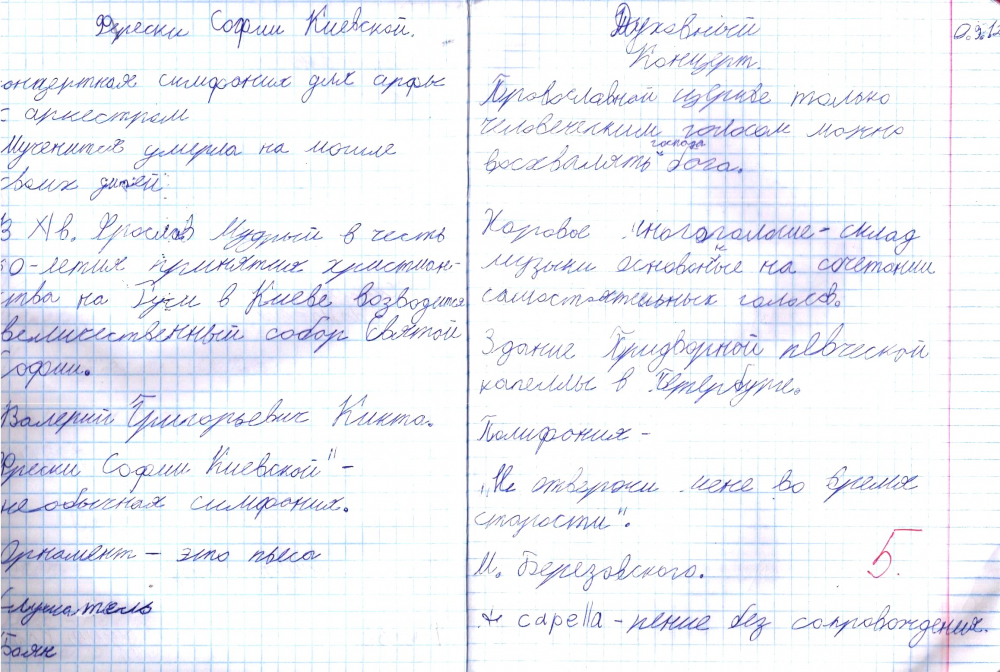 Фрески Софии Киевской.
онцертная симфония для арфы
с аркестром
Мученится умерла на могиле
своих дитей.
В XI в. Ярослав Мудрый в честь
50-летия принятия христиан-
ства на Руси в Киеве возводится
величественный собор Святой
Софии.
Валерий Григорьевич Кикта.
Фрески Софии Киевской" -
необычная симфония.
Орнамент - это пьеса
слушатель
Боян
Духовный
Концерт.
Провославной церкве только
человеческим голосом можно
господа
восхвалять бога.
Хоровое многоголоше - склад
музыки основоные на сочетании
самостоятельных голосов.
Здание Придворной певческой
капеллы в Петербурге.
Полифония -
„Не отвержи мене во время
старости".
М. Березовского.
5.
A capella - пение без сопровождения.